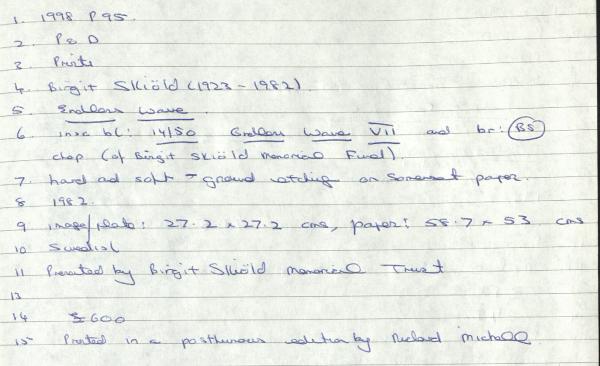 1. 1998 P 95.
2. P & D
3 Prints
4. Birgit Skiöld (1923 - 1982).
5. Endless Wave.
6 insc bl: 14/50 Endless Wave VII and br: BS
chop (of Birgit Skiöld Memorial Fund).
7. hard and soft - ground etching on Somerset paper.
8 1982.
9 image/plate: 27.2 x 27.2 cms, paper: 58.7 x 53 cms
10 Swedish
11 Presented by Birgit Skiöld Memorial Trust
13
14 £600
15 Printed in a posthumous edition by Richard Michell